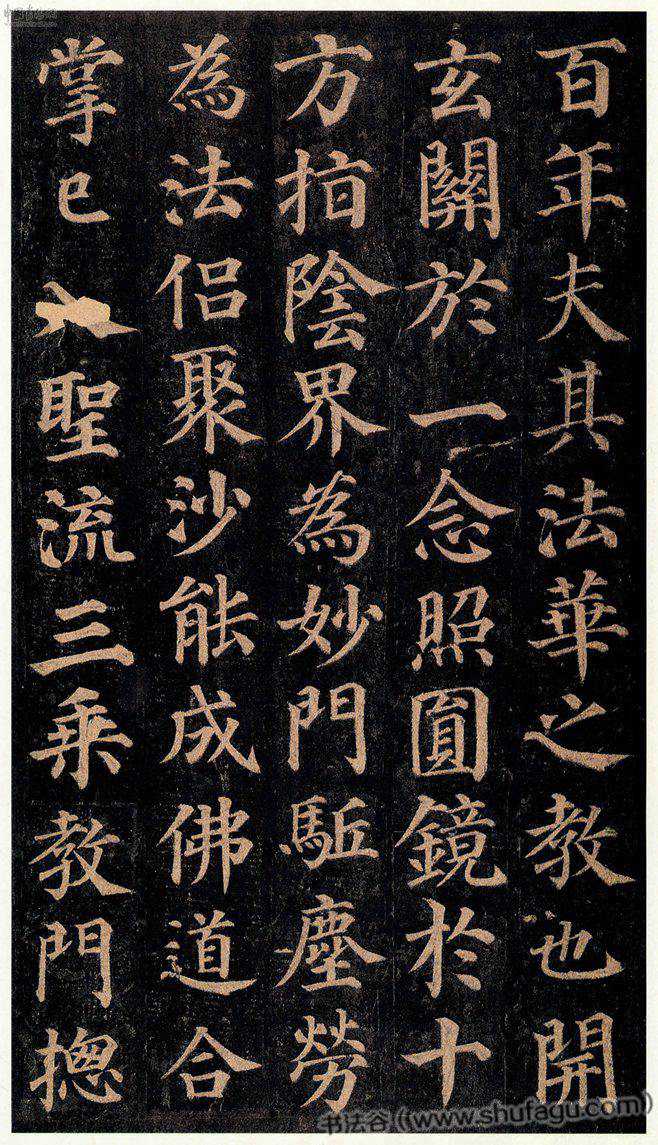 百年夫其法華之教也開
玄關於一念照圓鏡於十
方指陰界為妙門駈塵勞
為法侶聚沙能成佛道合
掌已聖流三乘教門揔
书法谷(www.shufagu.com)